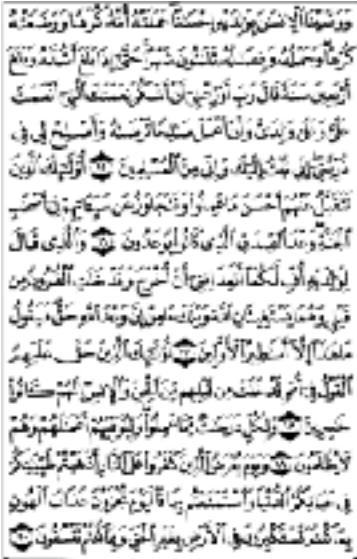 ووصينا الإنسن بولديه إحسنا حملته أمه كرها ووضعته
كرها وحمله وفصله ثلثون شهرا حتى إذا بلغ أشده وبلغ
أربعين سنة قال رب أوزعني أن أشكر نعمتك التي أنعمت
علي وعلى ولدي وأن أعمل صلحا ترضىه وأصلح لي في
ذريتي إني تبت إليك وإني من المسلمين ١٥ أولئك الذين
نتقبل عنهم أحسن ما عملوا ونتجاوز عن سيئاتهم في أصحب
الجنة وعد الصدق الذي كانوا يوعدون ١٦ والذي قال
لولديه أف لكما أتعدانني أن أخرج وقد خلت القرون من
قبلي وهما يستغيثان الله ويلك ءامن إن وعد الله حق فيقول
ما هذا إلا أسطير الأولين ١٧ أولئك الذين حق عليهم
القول في أمم قد خلت من قبلهم من الجن والإنس إنهم كانوا
خسرين ١٨ ولكل درجت مما عملوا وليوفيهم أعملهم وهم
لا يظلمون ١٩ ويوم يعرض الذين كفروا على النار أذهبتم طيبتكم
في حياتكم الدنيا واستمتعتم بها فاليوم تجزون عذاب الهون
بما كنتم تستكبرون في الأرض بغير الحق وبما كنتم تفسقون ٢٠